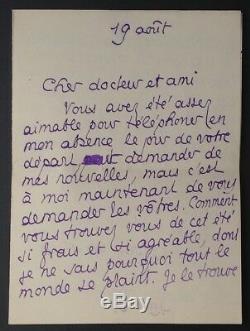 19 août
Cher docteur et ami
Vous avez été assez
aimable pour téléphoner en
mon absence le jour de votre
départ demander de
mes nouvelles, mais c'est
à moi maintenant de vous
demander les vôtres. Comment
vous trouvez vous de cet été
si frais et si agréable, dont
je ne sais pourquoi tout le
monde se plaint. Je le trouve